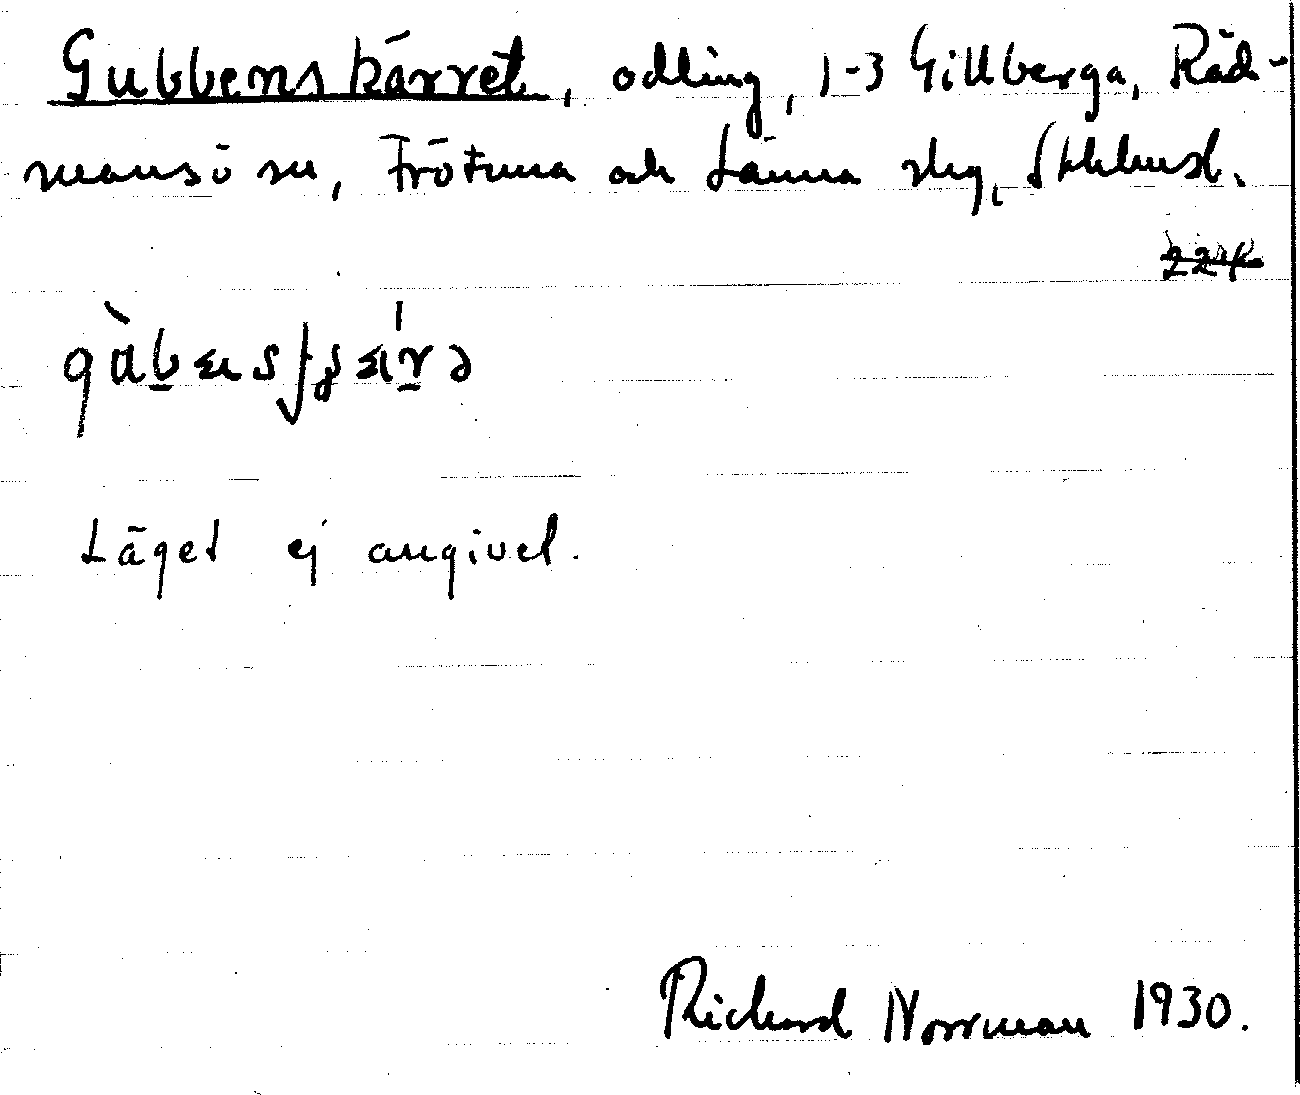 Gubbenskärret, odling, 1-3 Gillberga, Råd-
mansö sn, Frötuna och Länna slg, Sthlmsl.
Läget ej angivet.
Richard Norrman 1930.